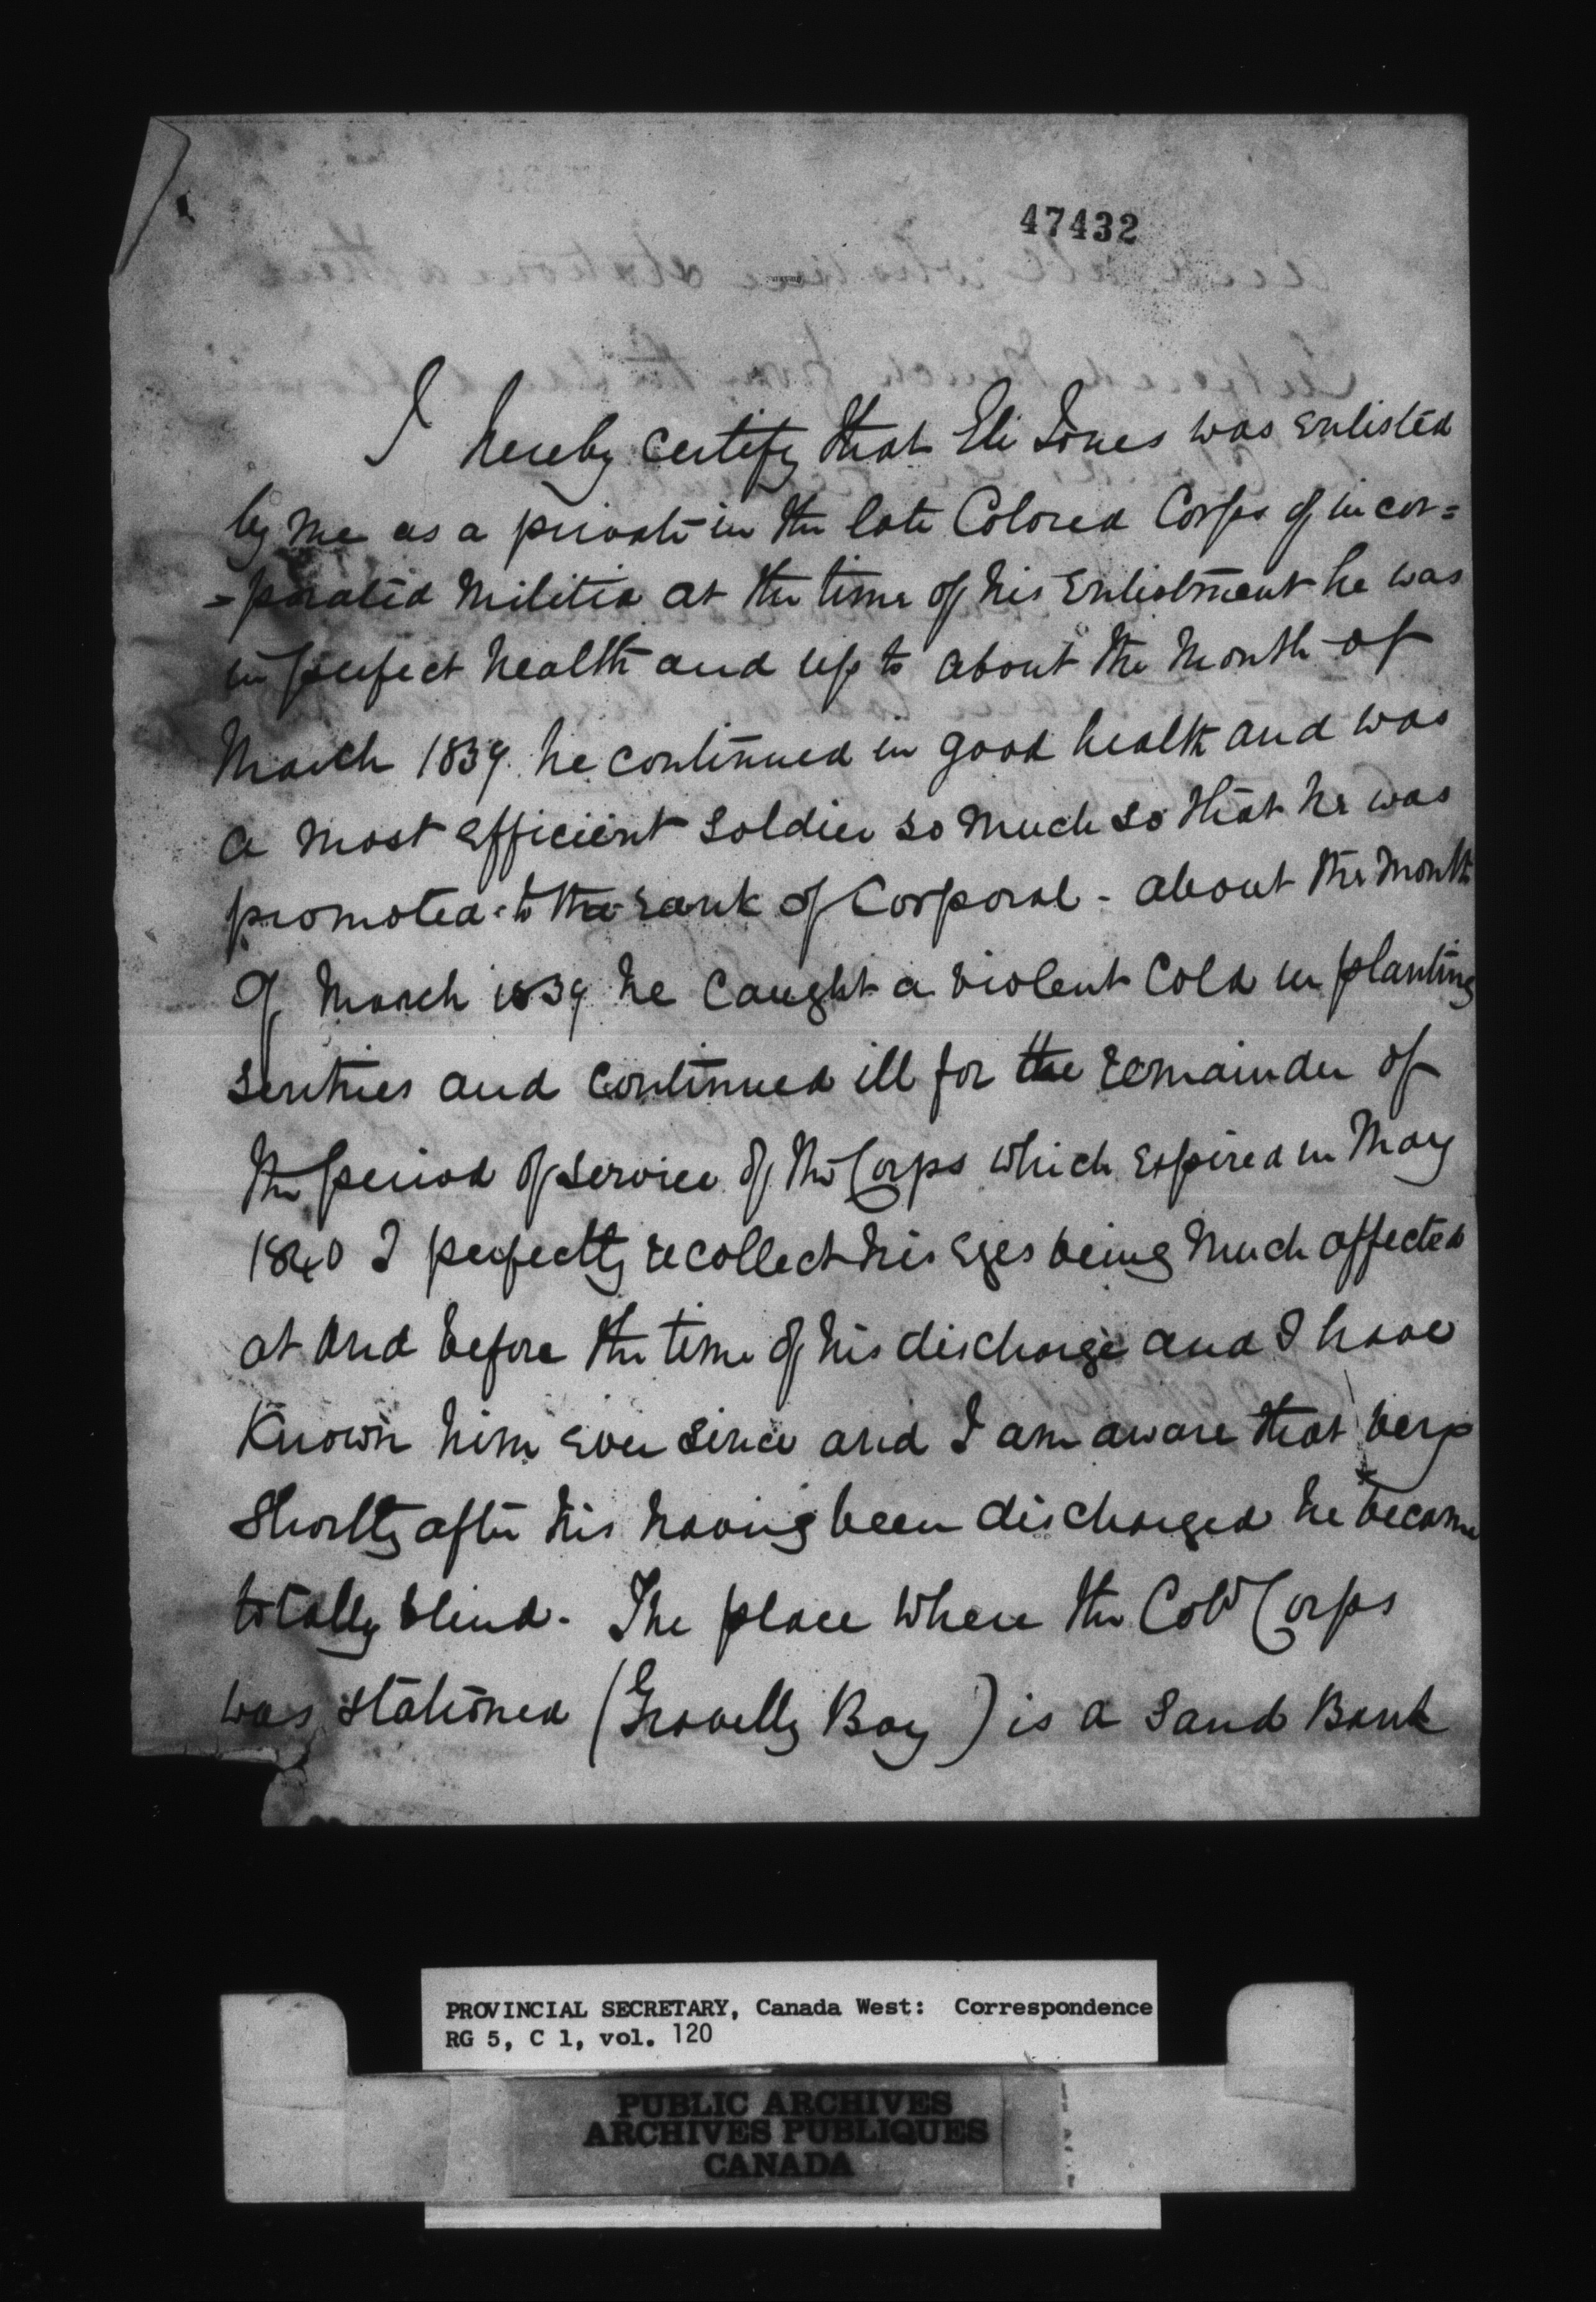 47432
I hereby certify that Eli Jones was enlisted
by me as a private in the late Colored Corps of incor=
=porated Militia at the time of his enlistment he was
in perfect health and up to about the Month of
March 1839. he continued in good health and was
a most efficient soldier so much so that he was
promoted to the rank of Corporal - about the Month
of March 1839 he caught a violent Cold in planting
sentries and continued ill for the remainder of
the period of service of the Corps which expired in May
1840 I perfectly recollect his eyes being much affected
at and before the time of his discharge and I have
known him ever since and I am aware that very
shortly after his having been discharged he became
totally blind. The place where the Cold Corps
was stationed (Gravelly Bay) is a Sand Bank
PROVINCIAL SECRETARY, Canada West: Correspondence
RG 5, C 1, vol. 120
PUBLIC ARCHIVES
ARCHIVES PUBLIQUES
CANADA